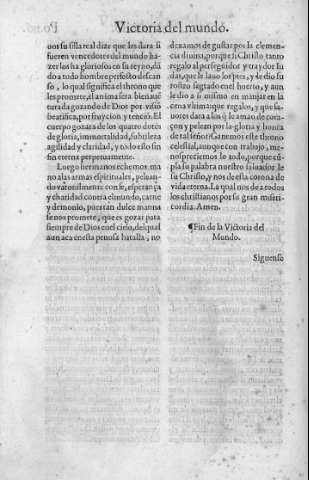 Victoria del mundo.
uos su silla real dize que les dara si
fueren vencedores del mundo ha-
zerlos ha gloriosos en su reyno, dã
do a todo hombre perfecto descan
so, lo qual significa el throno que
les promete, dãdoan bienauen
turãda gozando de Dios por visiõ
beatifica, por fruycion y tenciõ. El
cuerpo gozara de los quatro dotes
de gloria, immortalidad, subtileza
agilidad y claridad, y todo esto sin
fin eterna perpetuamente.
Luego hermanos echemos ma
no a las armas espirituales, pelean-
do varonilmente con fe, esperãça
y charidad contra el mundo, carne
y demonio, pues tan dulce manna
se nos promete, que es gozar para
siempre de Dios en el cielo, del qual
aun aca en esta penosa batalla, no
dexamos de gustar por la clemen-
cia diuina, porque si Christo tanto
regalo al perseguidor y traydor Iu
das, que le lauo los pies, y le dio su
rostro sagrado en el huerto, y aun
se dio a si mismo en manjar en la
cena vltima que regalos, y que sa-
uores dara a los q̃ le amã de coraçon
y pelean por la gloria y honra
de tal señor? Ganemos este throno
celestial, aunque con trabajo, me-
nospreciemos lo todo, porque cũ-
pla su palabra nuestro saluador Ie
su Christo, y nos de esta corona de
vida eterna. La qual nos de a todos
los christianos por su gran miseri-
cordia. Amen.
¶Fin de la Victoria del
Mundo.
Siguense